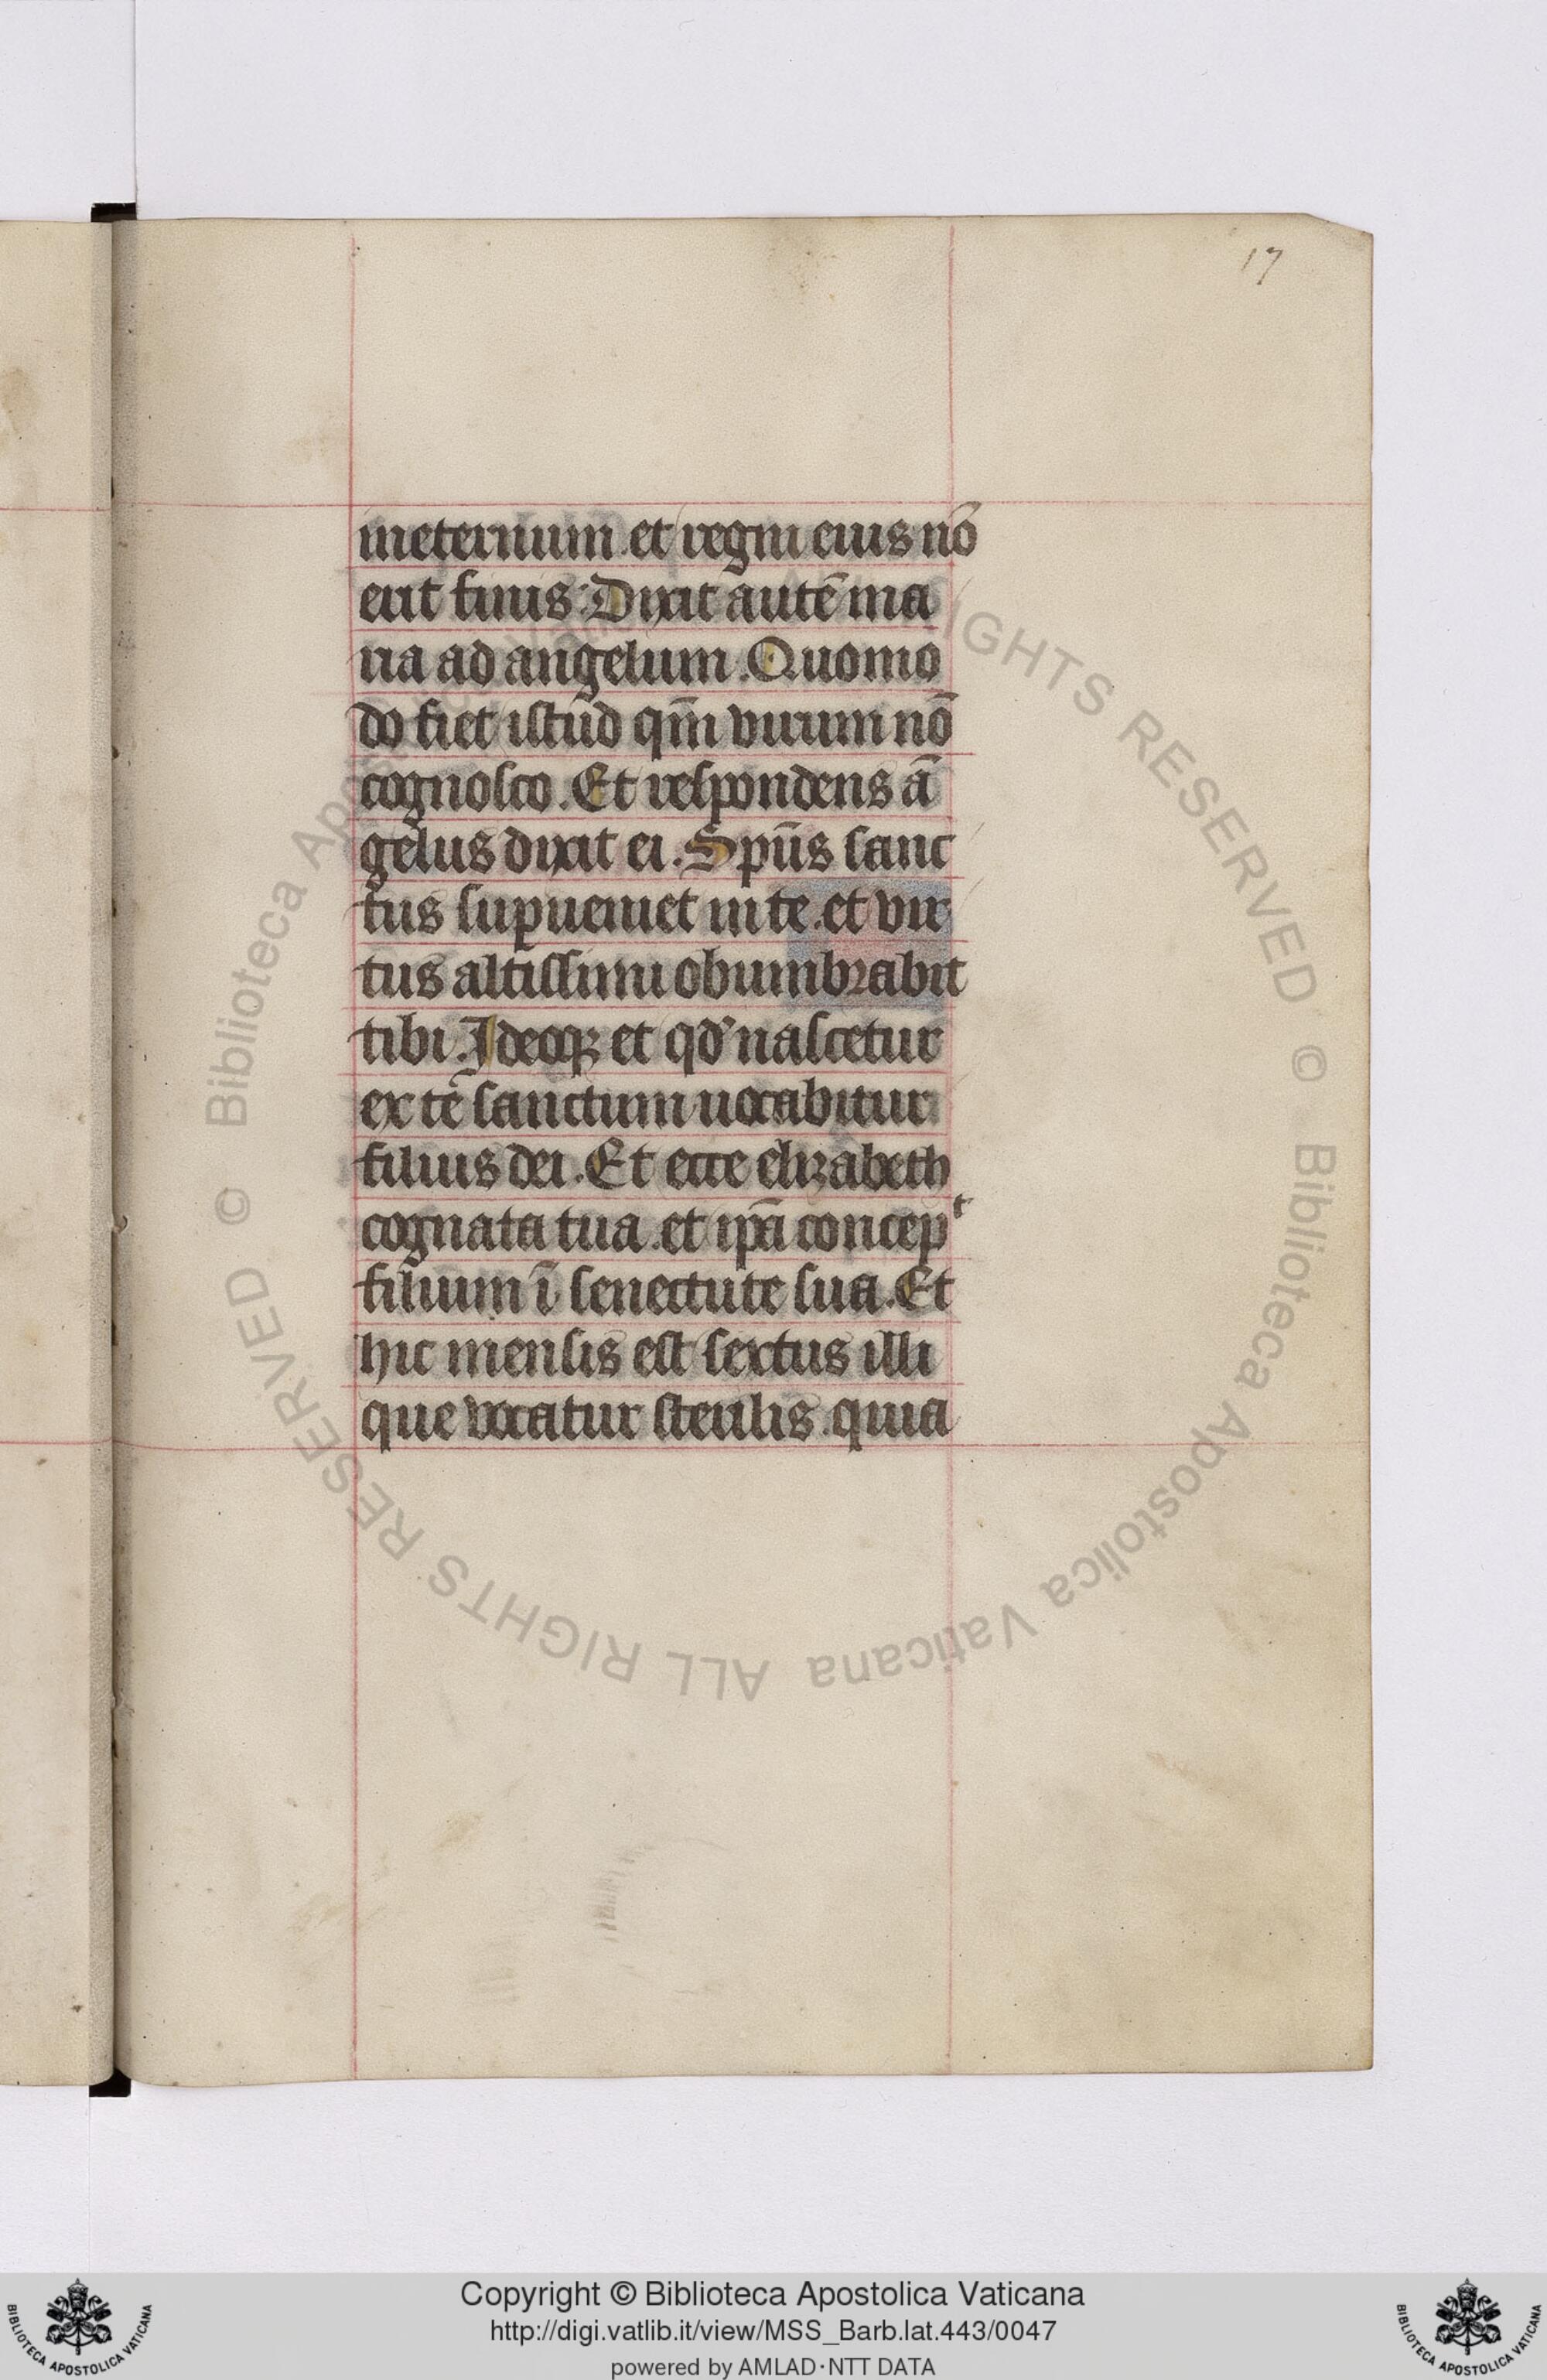 17
ineternum et regni eius nō
erit finis. Dixit autē ma
ria ad angelum. Quomo
do fiet istud qm̄ virum nō
cognosco. Et respondens ā
gelus dixit ei. Spūs sanc
tus supueniet in te. et vir
tus altissimi obumbrabit
tibi. Ideoqꝫ et qd' nascetur
ex te sanctum uocabitur
filius dei. Et ecce elizabeth
cognata tua. et ipā concepᵗ
filium ī senectute sua. Et
hic mensis est sextus illi
que vocatur sterilis. quia
© Biblioteca Apostolica Vaticana ALL RIGHTS RESERVED © Biblioteca Apostolica Vaticana ALL RIGHTS RESERVED
Copyright © Biblioteca Apostolica Vaticana
http://digi.vatlib.it/view/MSS_Barb.lat.443/0047
powered by AMLAD·NTT DATA
BIBLIOTECA APOSTOLICA VATICANA
BIBLIOTECA APOSTOLICA VATICANA